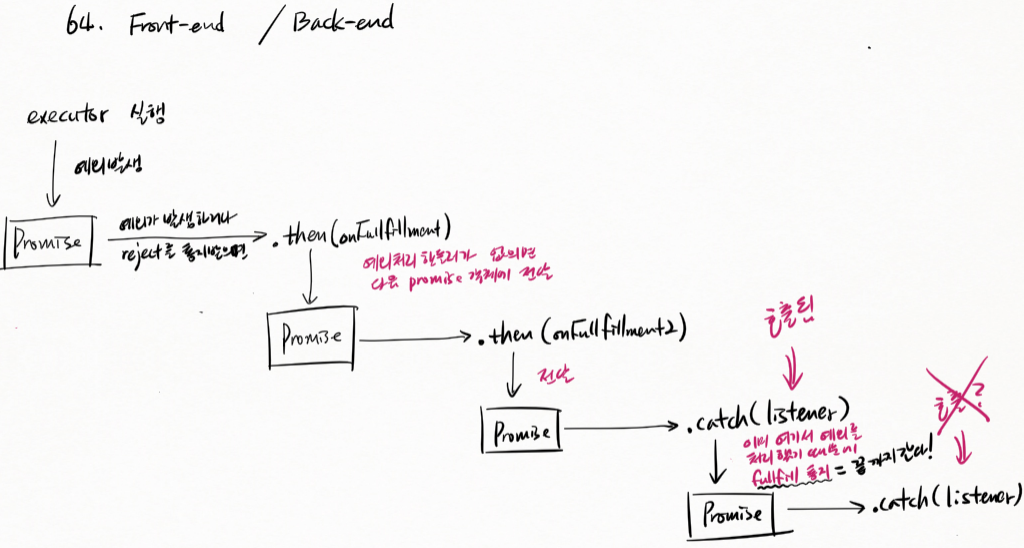 64. Front-end / Back-end
executor 실행
에러발생
Promise
에러가 발생하거나
reject를 통지받으면
.then(onFullfillment)
에러처리 핸들러가 없으면
다음 promise 객체에 전달
Promise
.then(onFullfillment2)
전달
호출됨
Promise
.catch(listener)
이미 여기서 에러를
처리했기 때문에
fullfill 통지 = 끝까지간다!
호출?
Promise
.catch(listener)